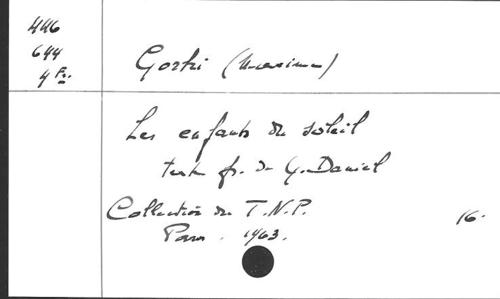 446
644
4 Fr.
Gorki (Maxime)
Les enfants du soleil
texte fr. de G. Daniel
Collection du T.N.P. 16.
Paris. 1963.